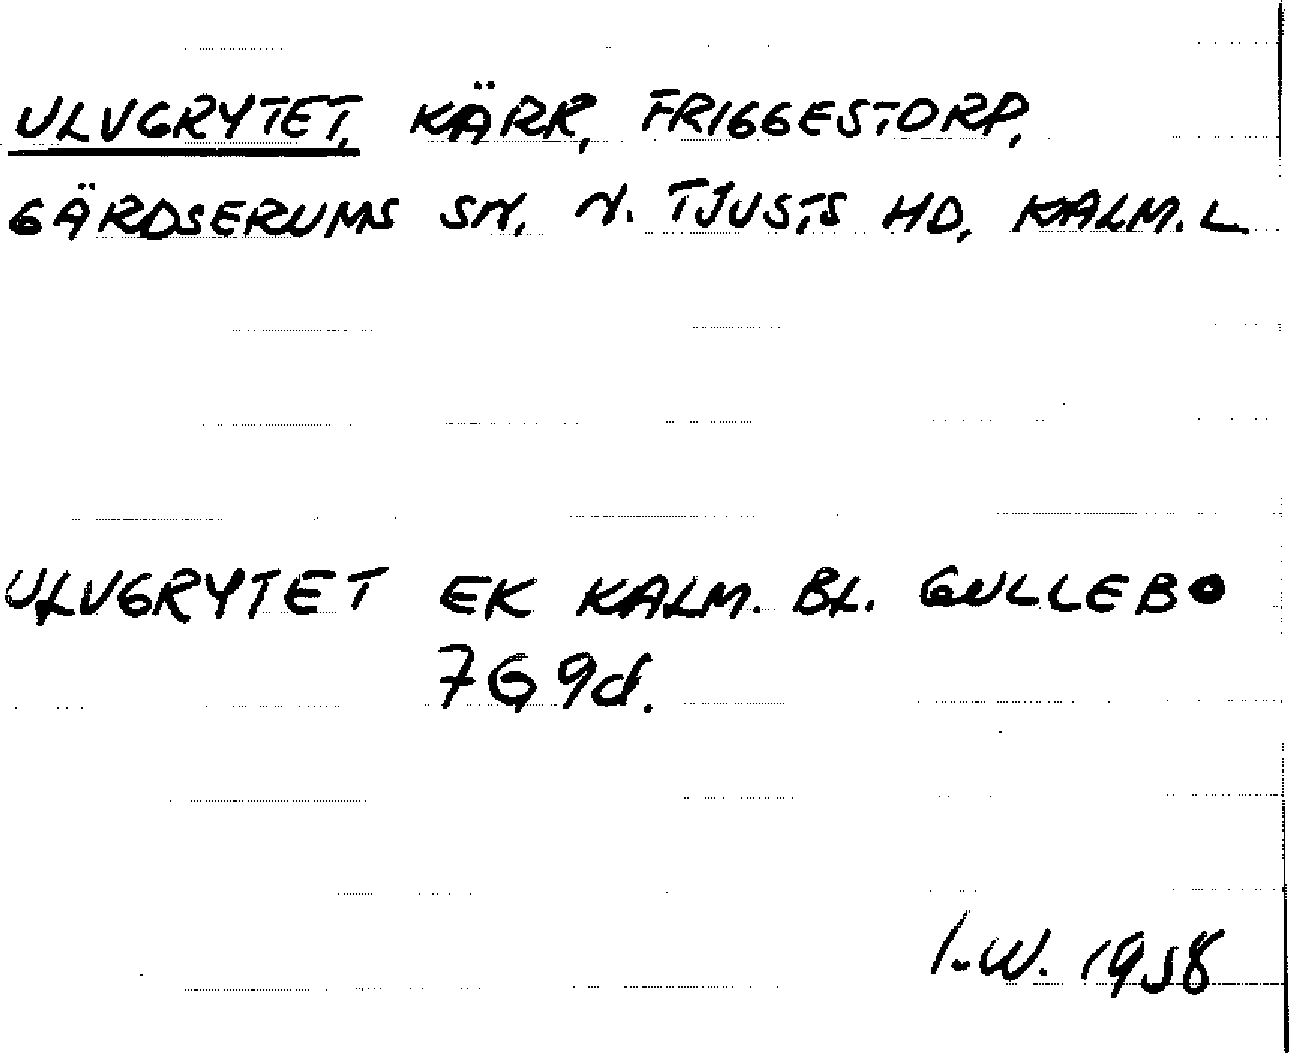 ULVGRYTET, KÄRR, FRIGGESTORP,
GÄRDSERUMS SN, N. TJUSTS HD, KALM. L
ULVGRYTET EK KALM. BL. GULLEBO
7G9d.
I.W. 1958